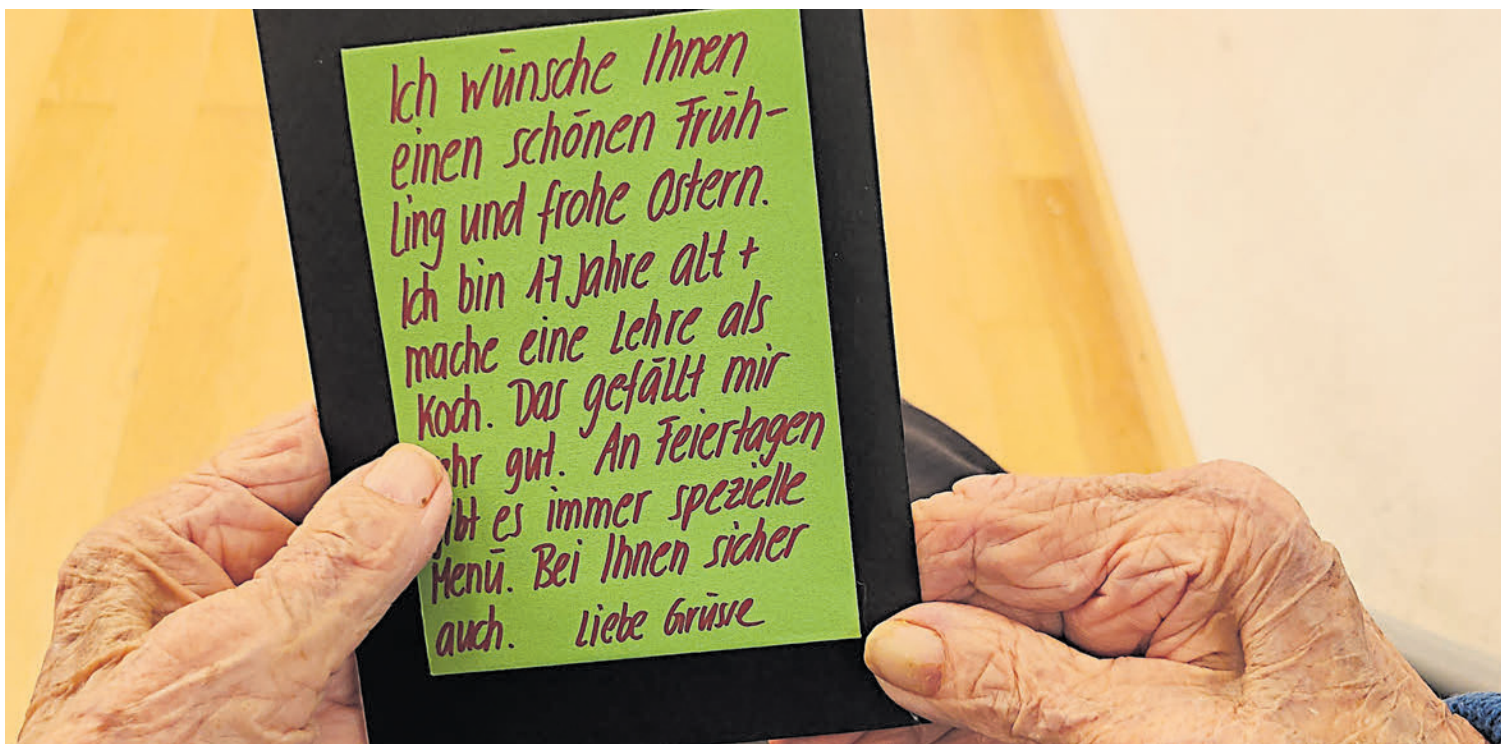 Ich wünsche Ihnen
einen schönen Früh-
ling und frohe Ostern.
Ich bin 17 Jahre alt +
mache eine Lehre als
Koch. Das gefällt mir
ehr gut. An Feiertagen
ibt es immer spezielle
Menü. Bei Ihnen sicher
auch. Liebe Grüsse